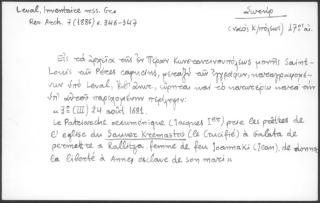 Laval, Inventaire mss. Gre
Rev. Arch. 7 (1886) σ. 346-347
(ναοί Κ/πόλεως) 17ος αἰ.
Εἰς τὰ ἀρχεῖα τῆς ἐν Πέραν Κωνσταντινουπόλεως μονῆς Saint-
Louis τῶν Pères capucins, μεταξὺ τῶν ἐγγράφων,
ὑπὸ Laval, καὶ τὸ κατωτέρω κατὰ τὴν
ὑπ' αὐτοῦ περίληψιν:
«3ο (III) 24 août 1681.
Le Patriarche œcuménique (Jacques Ier) prie les prêtres de
l'église du Sauveur Kremastos (le Crucifié) à Galata de
permettre à Rallitza, femme de feu Joannaki (Jean), de donner
la liberté à Anne, esclave de son mari»